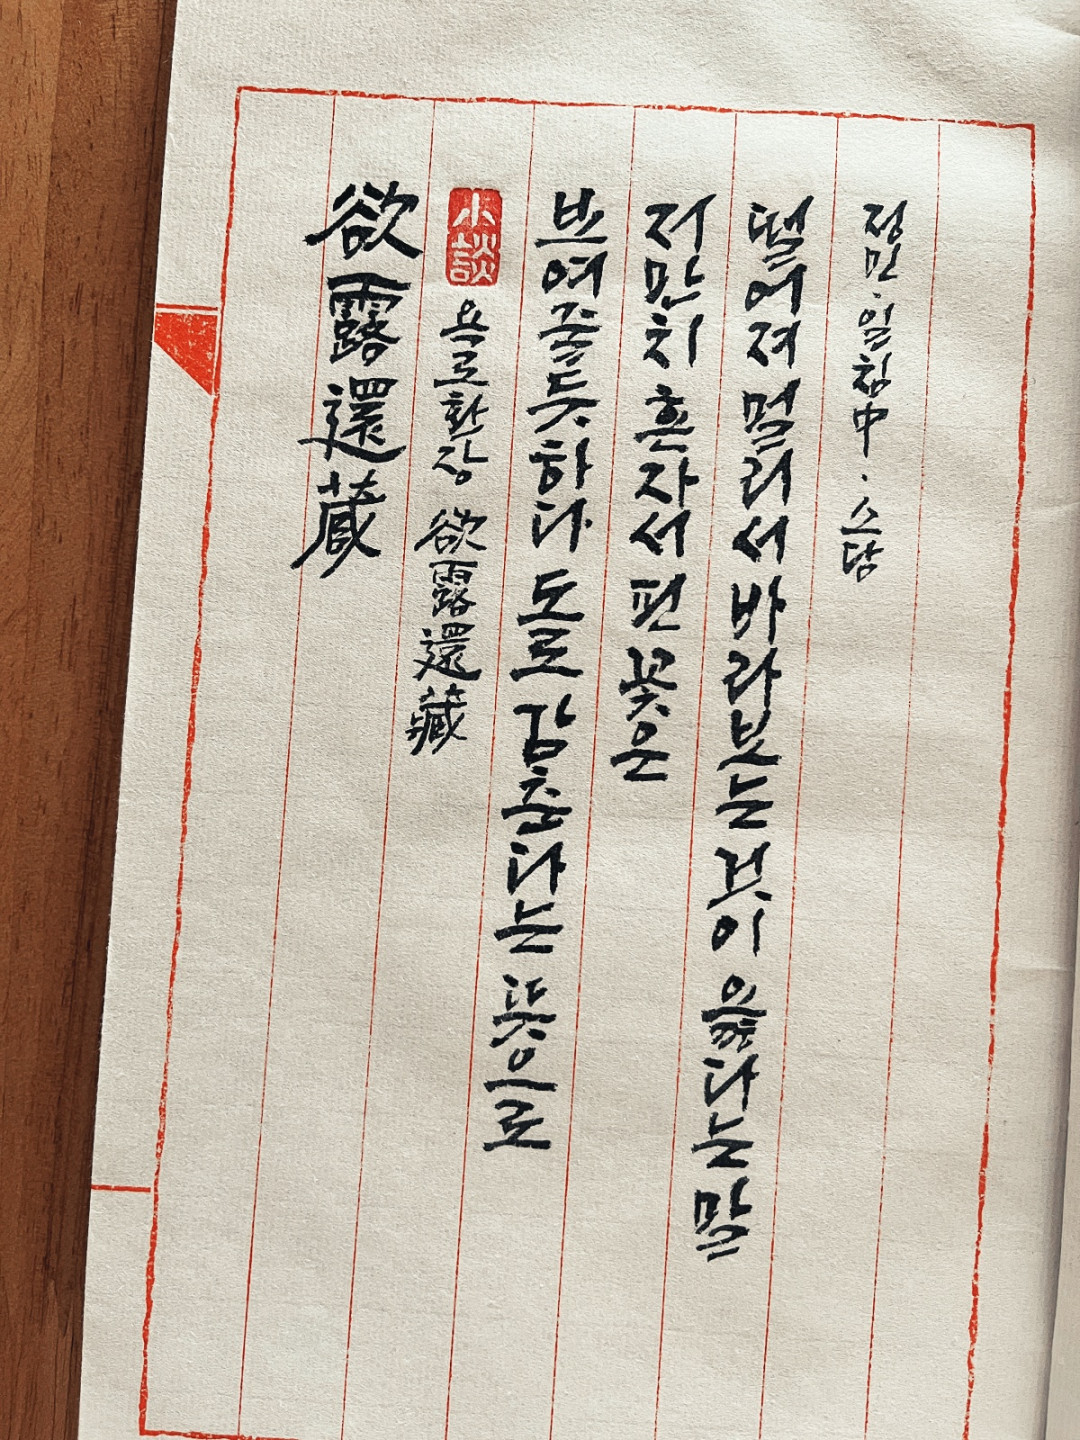 欲露還蔵
小談 욕로환장 欲露還藏
보여줄듯하다 도로 감춘다는 뜻으로
저만치 혼자서 핀 꽃은
떨어져 멀리서 바라보는 것이 옳다는 말
정민·일침中·소담